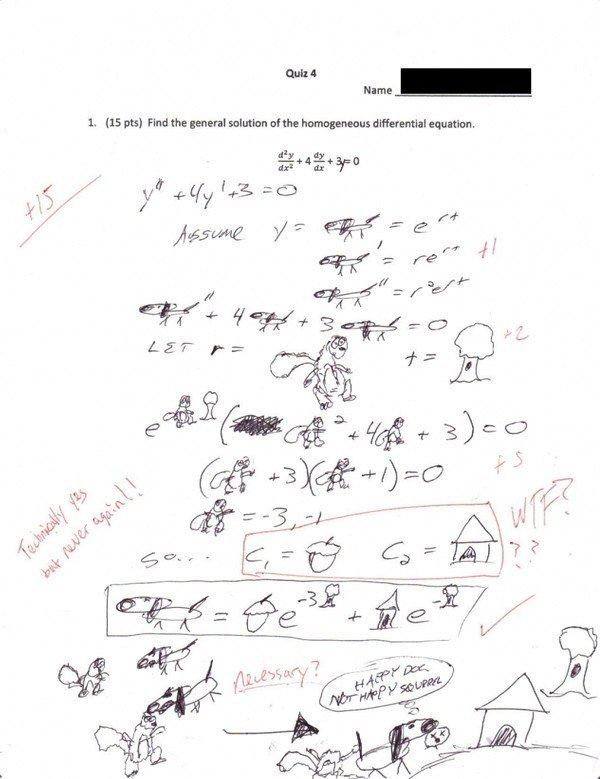 Quiz 4
Name
1. (15 pts) Find the general solution of the homogeneous differential equation.
d²y/dx² + 4 dy/dx + 3y = 0
+15
y" + 4y' + 3 = 0
ASSUME y = = e^rt
' = re^rt +1
" = r²e^rt
" + 4 + 3 = 0
+2
LET r = t =
e ( ² + 4 + 3) = 0
+5
( + 3)( + 1) = 0
= -3, -1
Technically yes
but never again!!
WTF?
??
SO... C₁ = C₂ =
= e^-3 + e^-
necessary?
HAPPY DOG
NOT HAPPY SQUIRREL